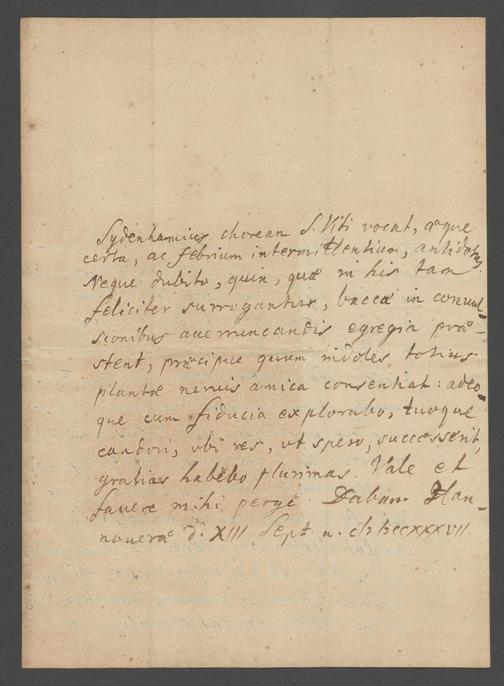 Sydenhamius chorean S. Viti vocat, æque
certa, ac febrium intermittentium, antidotus.
Neque dubito, quin, quæ in his tam
feliciter surrogantur, baccæ in convul-
sionibus averruncandis egregia præ-
stent, præcipue quum indoles totius
plantæ nervis amica consentiat: adeo-
que cum fiducia explorabo, tuoque
candori, ubi res, ut spero, successerit,
gratias habebo plurimas. Vale et
favere mihi perge. Dabam Han-
noveræ d. XIII Sept. a. cIɔIɔccxxxvII.